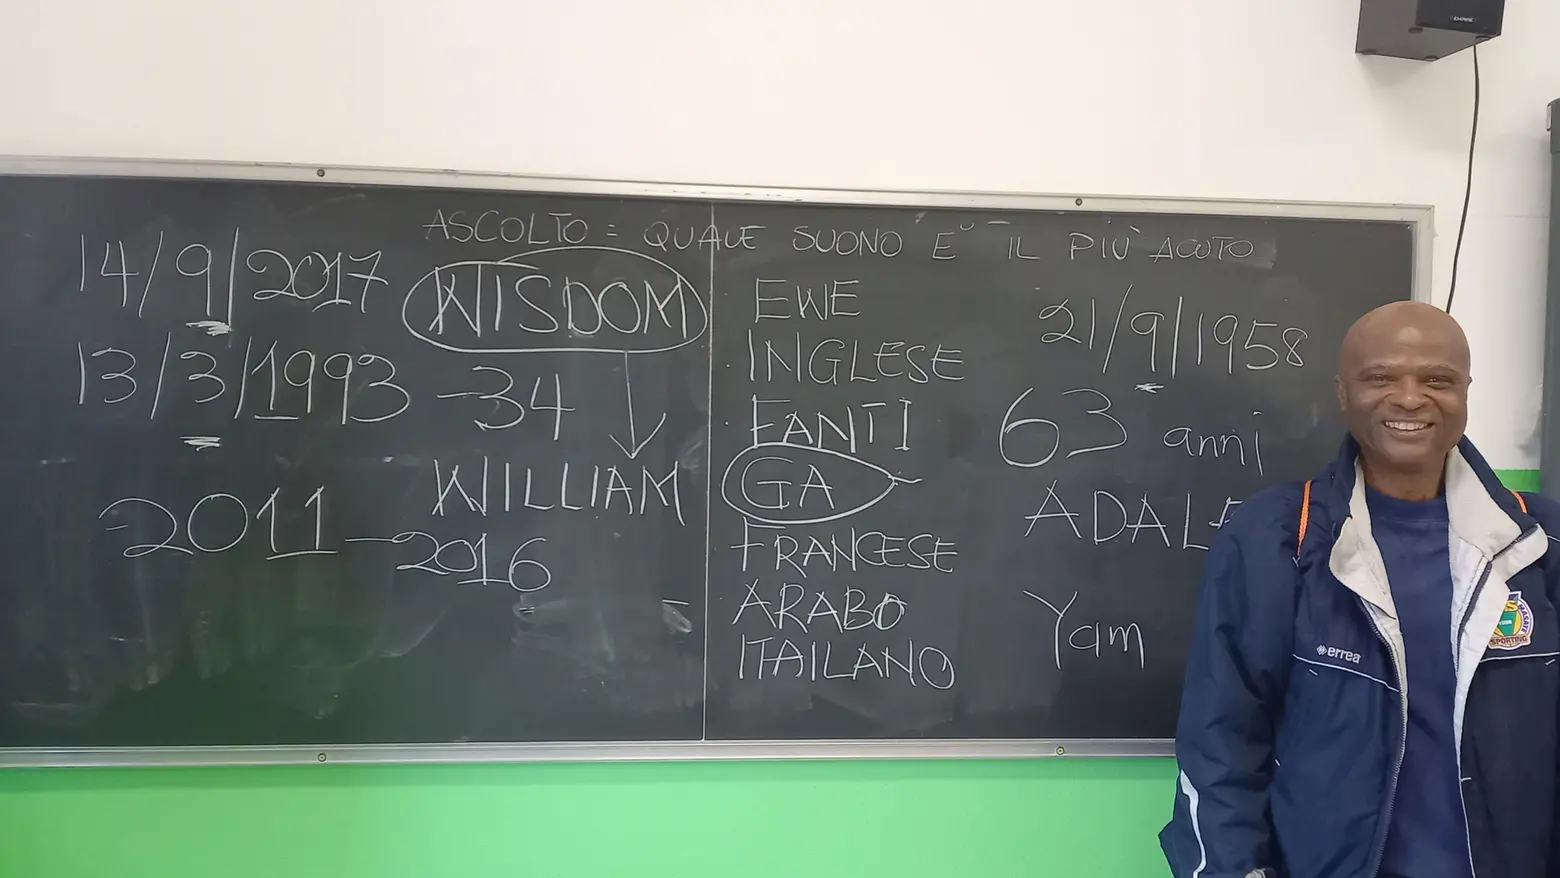 ASCOLTO = QUALE SUONO E' IL PIÙ ACUTO
14/9/2017
WISDOM
13/3/1993 -34
WILLIAM
-2011-2016
EWE
INGLESE
FANTI
GA
FRANCESE
ARABO
ITAILANO
21/9/1958
63 anni
Yam
errea
SPORTING
EMPIRE